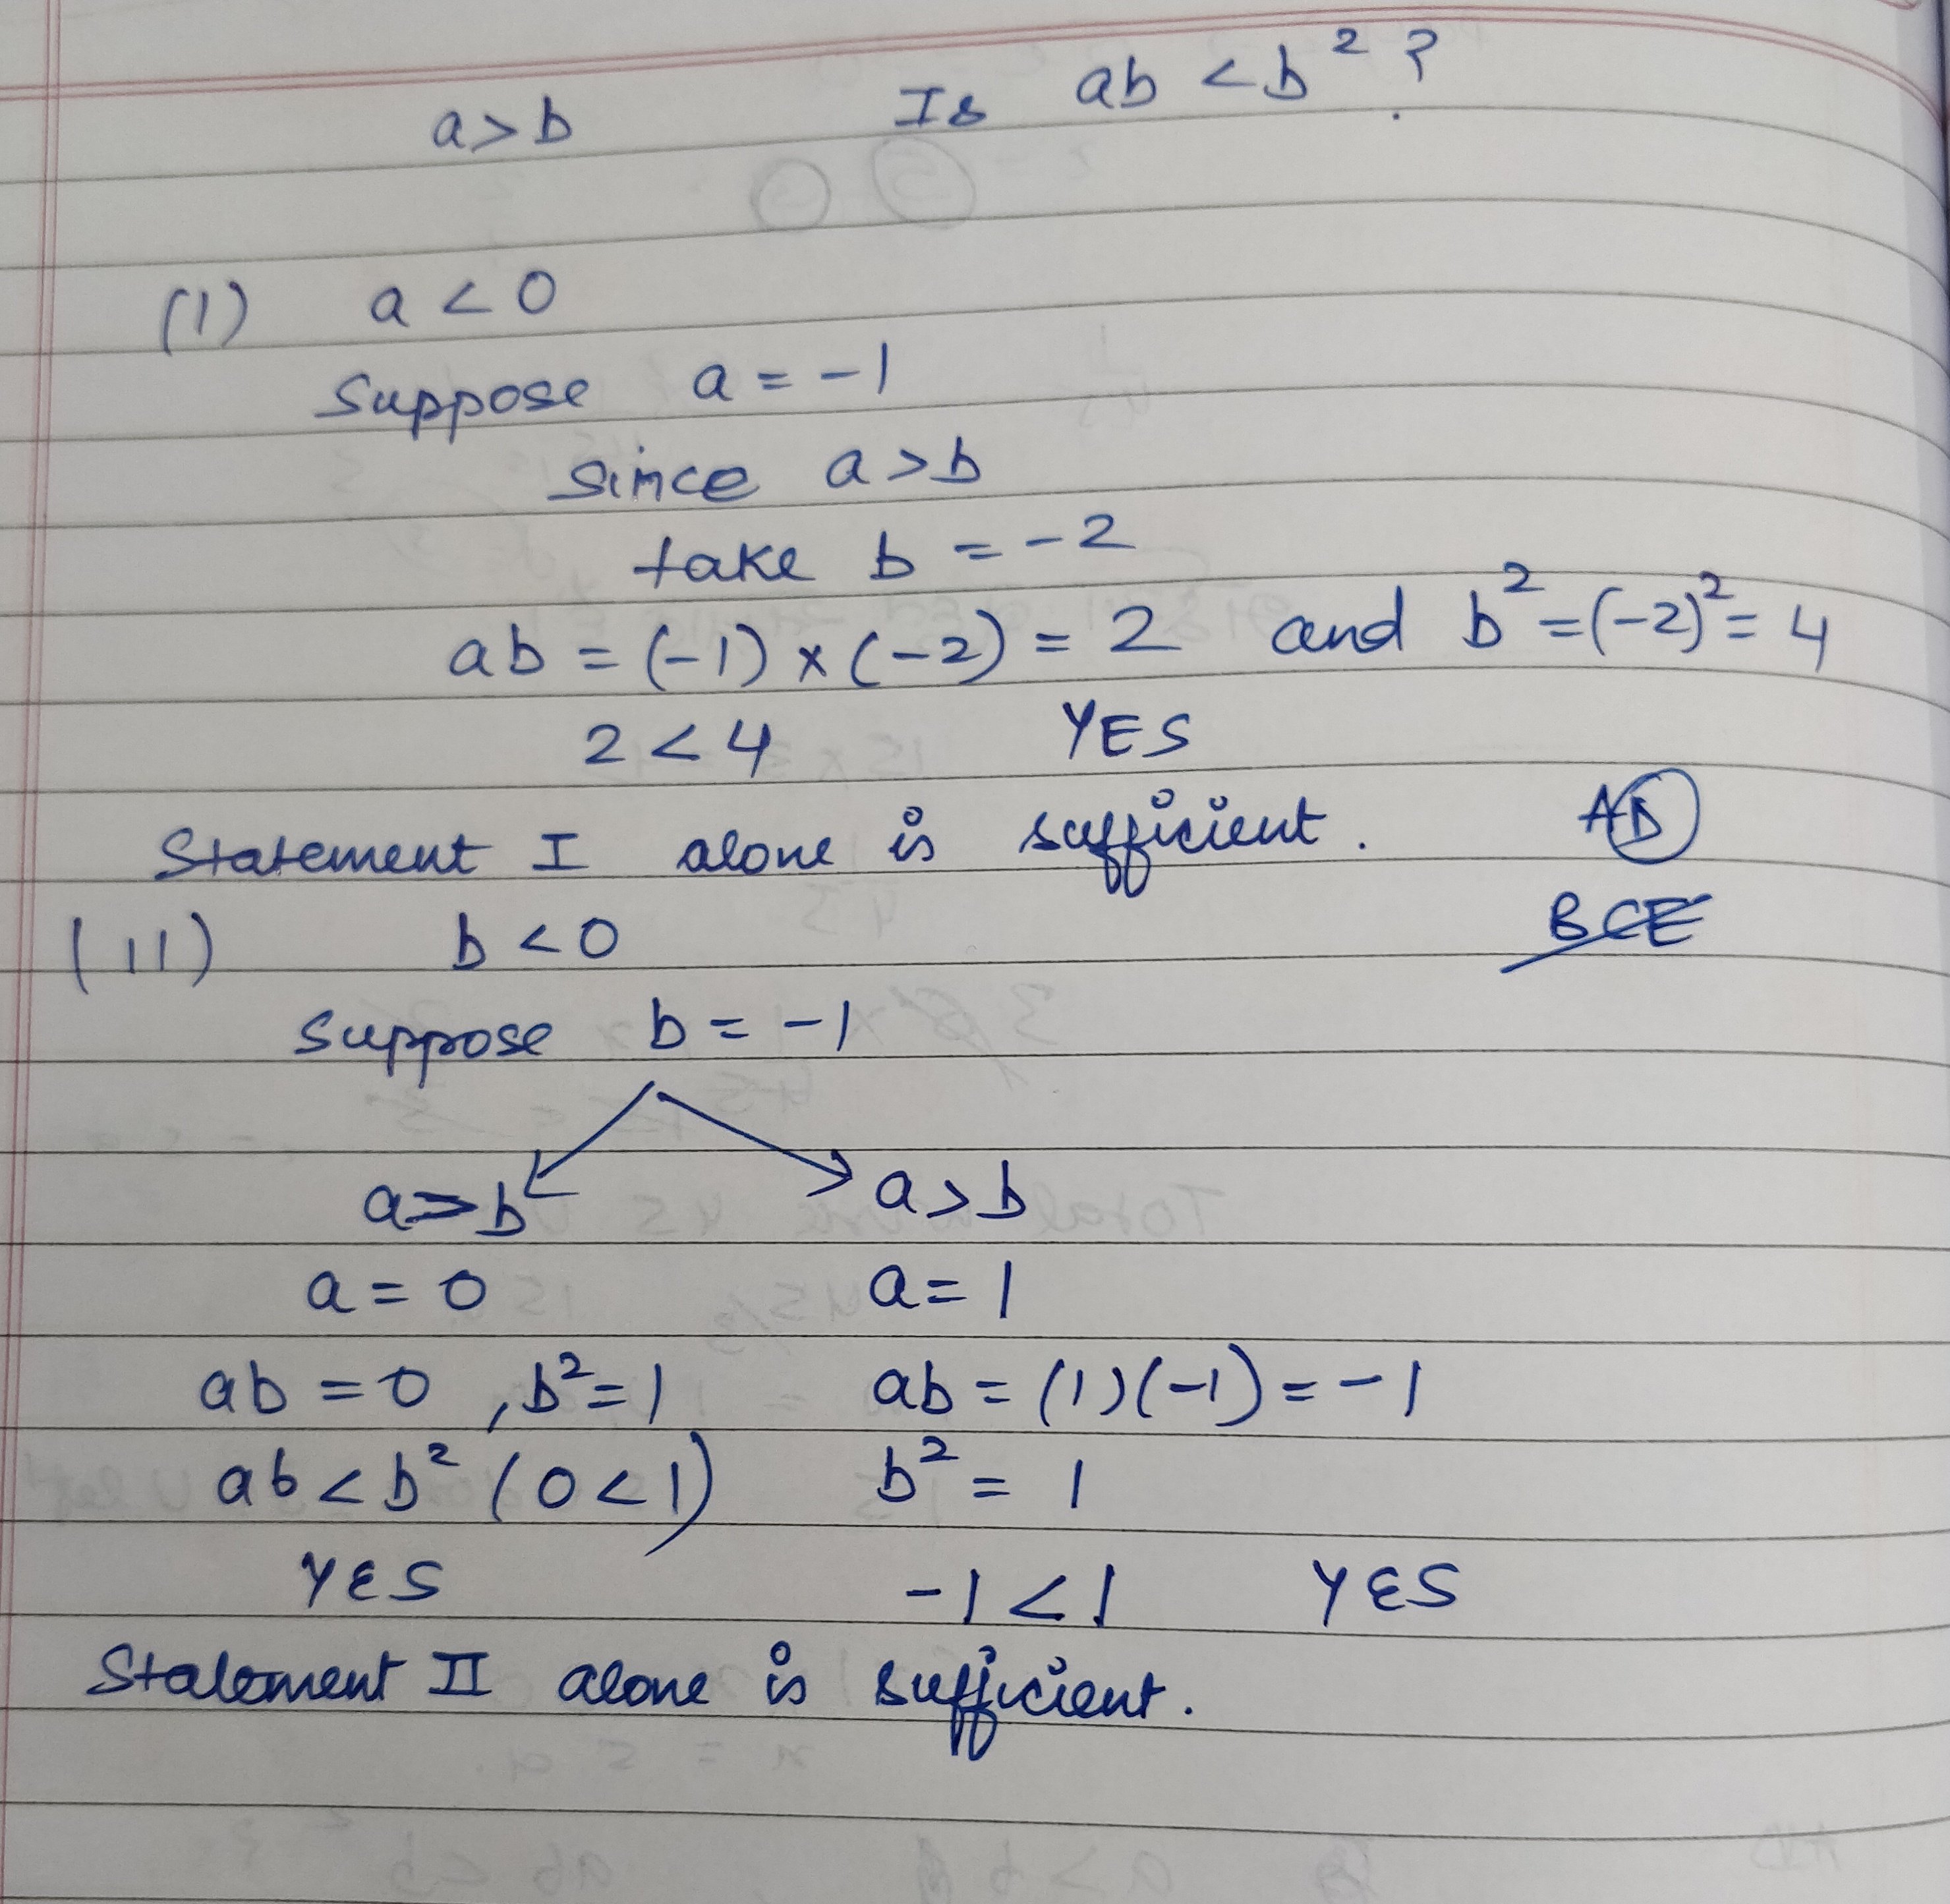 a>b Is ab <b² ?
(1) a < 0
Suppose a = -1
Since a >b
take b = -2
ab = (-1) × (-2) = 2 and b² =(-2)² = 4
2 < 4 YES
Statement I alone is sufficient. AD
(11) b < 0 BCE
Suppose b = -1
a>b a>b
a = 0 a= 1
ab = 0 , b²= 1 ab = (1)(-1) = -1
ab < b² (0<1) b² = 1
YES -1 < 1 YES
Statement II alone is sufficient.